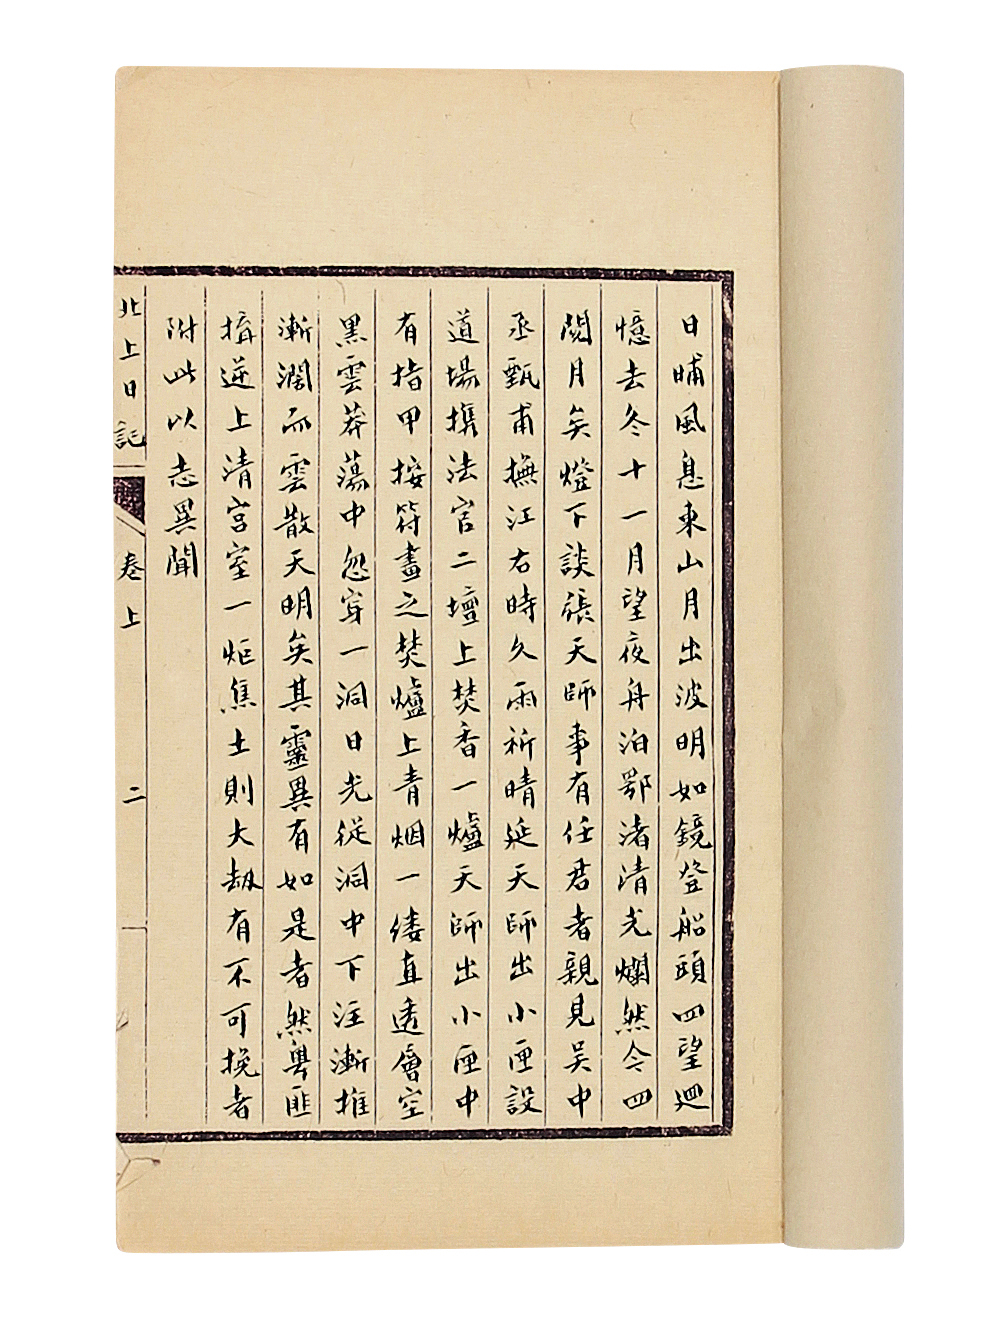 日晡風息東山月出波明如鏡登船頭四望迴
憶去冬十一月望夜舟泊鄂渚清光爛然今四
閱月矣燈下談張天師事有任君者親見吳中
丞甄甫撫江右時久雨祈晴延天師出小匣設
道場攜法官二壇上焚香一爐天師出小匣中
有指甲按符畫之焚爐上青烟一縷直透層空
黑雲莽蕩中忽穿一洞日光從洞中下注漸推
漸濶而雲散天明矣其靈異有如是者然粵匪
擠逆上清宮室一炬焦土則大劫有不可挽者
附此以志異聞
北上日記
卷上
二